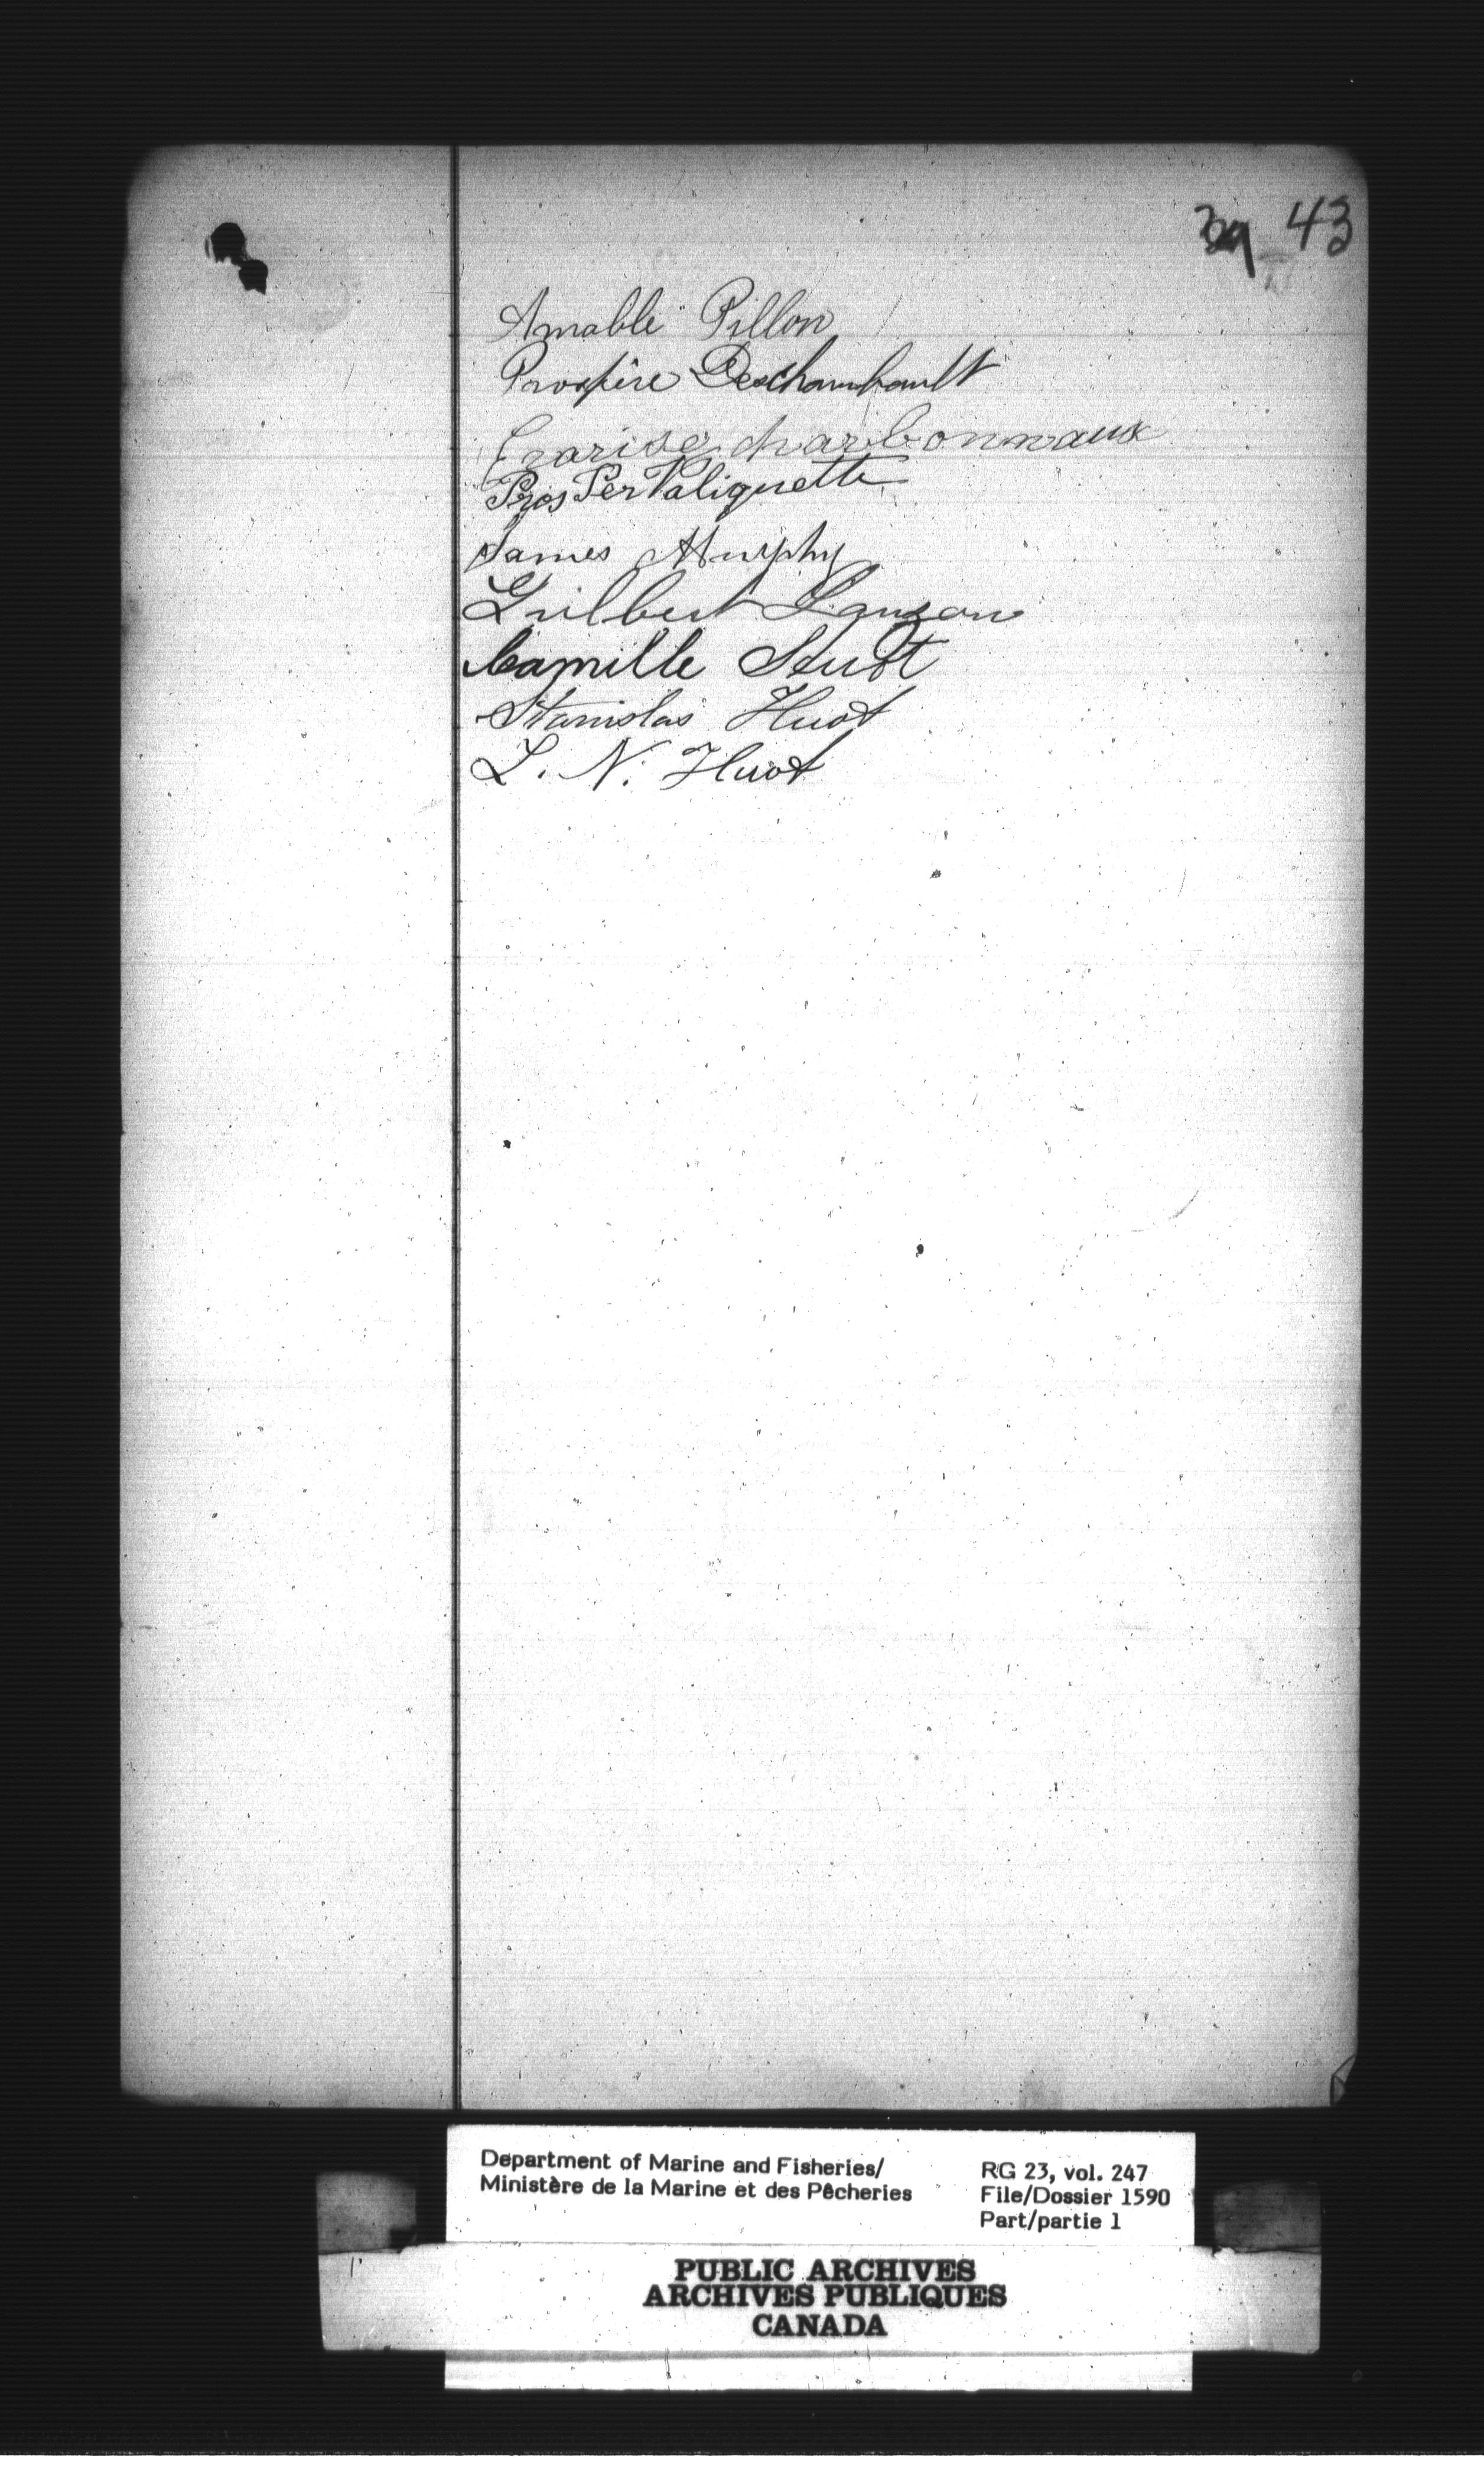 43
Amable Pillon
Prospère Deschambault
charbonnaux
ProsPer Valiquette
James Murphy
Guilbert Lauzon
Camille Huot
Stanislas Huot
L. N. Huot
Department of Marine and Fisheries/
Ministère de la Marine et des Pêcheries
RG 23, vol. 247
File/Dossier 1590
Part/partie 1
PUBLIC ARCHIVES
ARCHIVES PUBLIQUES
CANADA